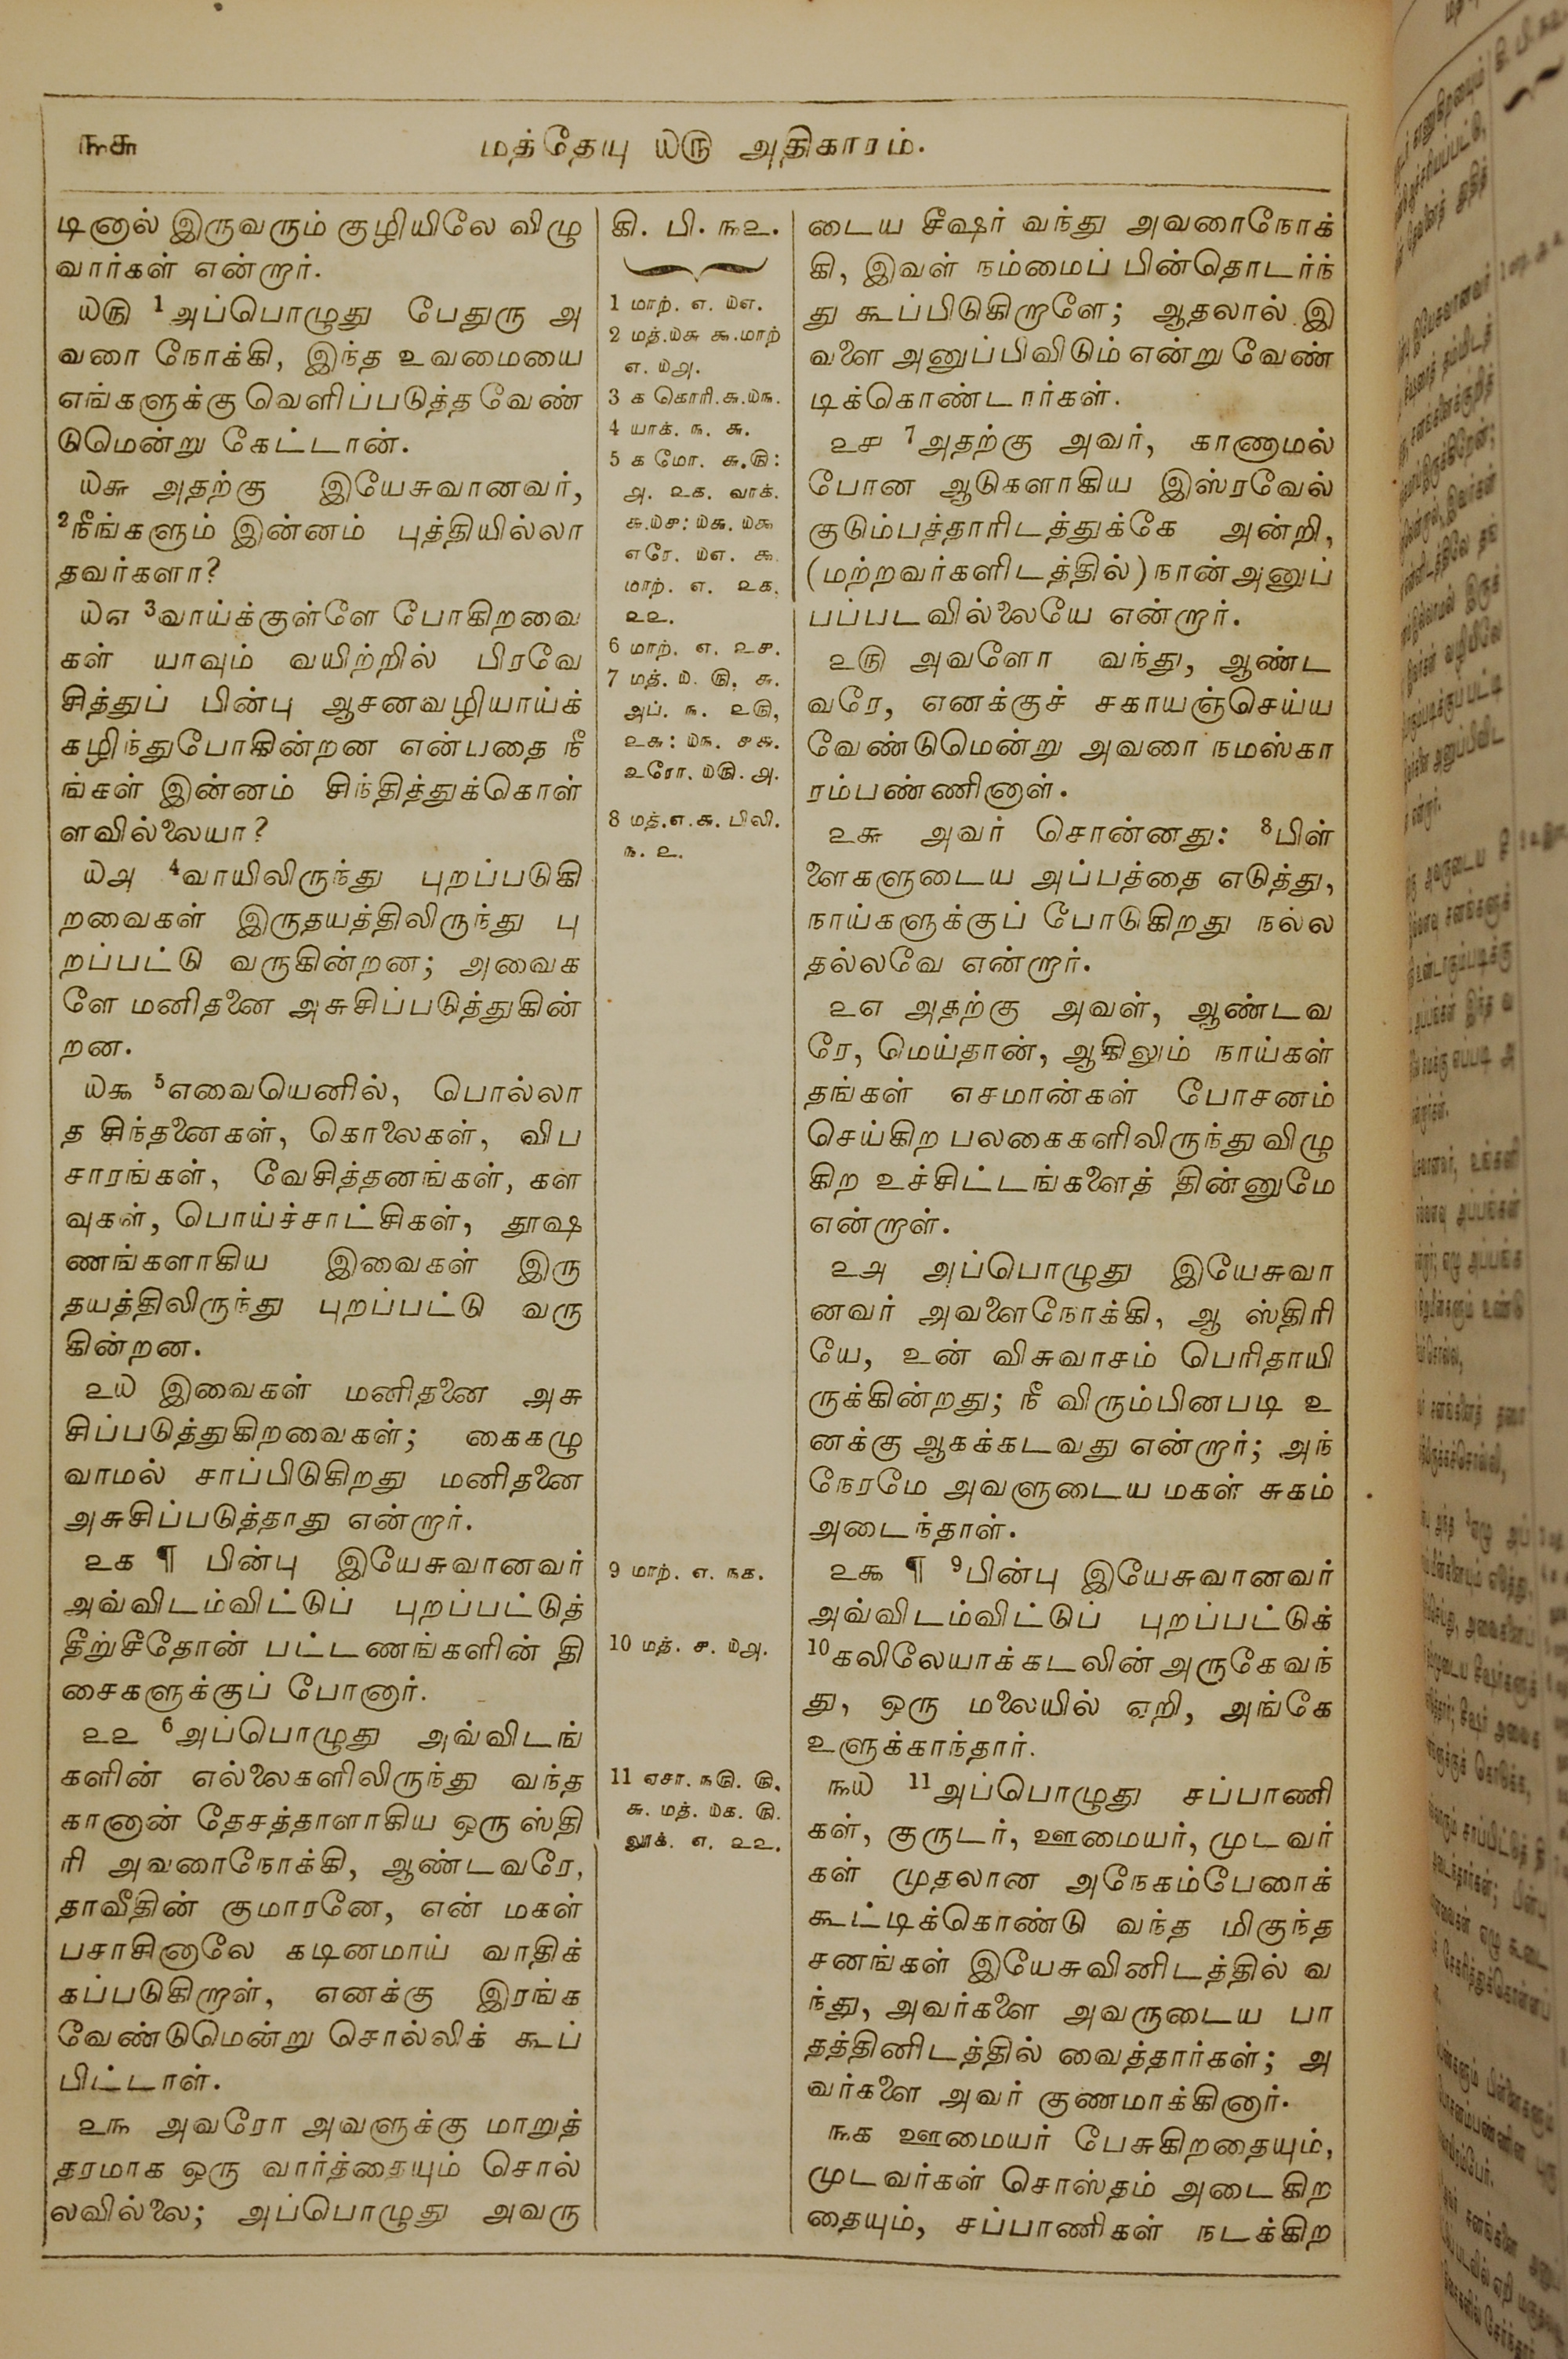 ௩௬
மத்தேயு ௰௫ அதிகாரம்.
டினால் இருவரும் குழியிலே விழு
வார்கள் என்றார்.
௰௫ 1 அப்பொழுது பேதுரு அ
வரை நோக்கி, இந்த உவமையை
எங்களுக்கு வெளிப்படுத்த வேண்
டுமென்று கேட்டான்.
௰௬ அதற்கு இயேசுவானவர்,
2 நீங்களும் இன்னம் புத்தியில்லா
தவர்களா?
௰௭ 3 வாய்க்குள்ளே போகிறவை
கள் யாவும் வயிற்றில் பிரவே
சித்துப் பின்பு ஆசனவழியாய்க்
கழிந்துபோகின்றன என்பதை நீ
ங்கள் இன்னம் சிந்தித்துக்கொள்
ளவில்லையா?
௰௮ 4 வாயிலிருந்து புறப்படுகி
றவைகள் இருதயத்திலிருந்து பு
றப்பட்டு வருகின்றன; அவைக
ளே மனிதனை அசுசிப்படுத்துகின்
றன.
௰௯ 5 எவையெனில், பொல்லா
த சிந்தனைகள், கொலைகள், விப
சாரங்கள், வேசித்தனங்கள், கள
வுகள், பொய்ச்சாட்சிகள், தூஷ
ணங்களாகிய இவைகள் இரு
தயத்திலிருந்து புறப்பட்டு வரு
கின்றன.
௨௰ இவைகள் மனிதனை அசு
சிப்படுத்துகிறவைகள்; கைகழு
வாமல் சாப்பிடுகிறது மனிதனை
அசுசிப்படுத்தாது என்றார்.
௨௧ ¶ பின்பு இயேசுவானவர்
அவ்விடம்விட்டுப் புறப்பட்டுத்
தீறுசீதோன் பட்டணங்களின் தி
சைகளுக்குப் போனார்.
௨௨ 6 அப்பொழுது அவ்விடங்
களின் எல்லைகளிலிருந்து வந்த
கானான் தேசத்தாளாகிய ஒரு ஸ்தி
ரி அவரைநோக்கி, ஆண்டவரே,
தாவீதின் குமாரனே, என் மகள்
பசாசினாலே கடினமாய் வாதிக்
கப்படுகிறாள், எனக்கு இரங்க
வேண்டுமென்று சொல்லிக் கூப்
பிட்டாள்.
௨௩ அவரோ அவளுக்கு மாறுத்
தரமாக ஒரு வார்த்தையும் சொல்
லவில்லை; அப்பொழுது அவரு
கி. பி. ௩௨.
1 மாற். ௭. ௰௭.
2 மத்.௰௬ ௯.மாற்
௭. ௰௮.
3 ௧ கொரி.௬.௰௩.
4 யாக். ௩. ௬.
5 ௧ மோ. ௬.௫:
௮. ௨௧. வாக்.
௬.௰௪: ௰௬. ௰௯
எரே. ௰௭. ௯.
மாற். ௭. ௨௧.
௨௨.
6 மாற். ௭. ௨௪.
7 மத். ௰. ௫. ௬.
அப். ௩. ௨௫,
௨௬: ௰௩. ௪௬.
உரோ. ௰௫. ௮.
8 மத்.௭.௬. பிலி.
௩. ௨.
9 மாற். ௭. ௩௧.
10 மத். ௪. ௰௮.
11 ஏசா. ௩௫. ௫.
௬. மத். ௰௧. ௫.
லூக். ௭. ௨௨.
டைய சீஷர் வந்து அவரைநோக்
கி, இவள் நம்மைப் பின்தொடர்ந்
து கூப்பிடுகிறாளே; ஆதலால் இ
வளை அனுப்பிவிடும் என்று வேண்
டிக்கொண்டார்கள்.
௨௪ 7 அதற்கு அவர், காணாமல்
போன ஆடுகளாகிய இஸ்ரவேல்
குடும்பத்தாரிடத்துக்கே அன்றி,
(மற்றவர்களிடத்தில்) நான் அனுப்
பப்படவில்லையே என்றார்.
௨௫ அவளோ வந்து, ஆண்ட
வரே, எனக்குச் சகாயஞ்செய்ய
வேண்டுமென்று அவரை நமஸ்கா
ரம்பண்ணினாள்.
௨௬ அவர் சொன்னது: 8 பிள்
ளைகளுடைய அப்பத்தை எடுத்து,
நாய்களுக்குப் போடுகிறது நல்ல
தல்லவே என்றார்.
௨௭ அதற்கு அவள், ஆண்டவ
ரே, மெய்தான், ஆகிலும் நாய்கள்
தங்கள் எசமான்கள் போசனம்
செய்கிற பலகைகளிலிருந்து விழு
கிற உச்சிட்டங்களைத் தின்னுமே
என்றாள்.
௨௮ அப்பொழுது இயேசுவா
னவர் அவளைநோக்கி, ஆ ஸ்திரி
யே, உன் விசுவாசம் பெரிதாயி
ருக்கின்றது; நீ விரும்பினபடி உ
னக்கு ஆகக்கடவது என்றார்; அந்
நேரமே அவளுடைய மகள் சுகம்
அடைந்தாள்.
௨௯ ¶ 9 பின்பு இயேசுவானவர்
அவ்விடம்விட்டுப் புறப்பட்டுக்
10 கலிலேயாக்கடலின் அருகே வந்
து, ஒரு மலையில் ஏறி, அங்கே
உளுக்காந்தார்.
௩௰ 11 அப்பொழுது சப்பாணி
கள், குருடர், ஊமையர், முடவர்
கள் முதலான அநேகம்பேரைக்
கூட்டிக்கொண்டு வந்த மிகுந்த
சனங்கள் இயேசுவினிடத்தில் வ
ந்து, அவர்களை அவருடைய பா
தத்தினிடத்தில் வைத்தார்கள்; அ
வர்களை அவர் குணமாக்கினார்.
௩௧ ஊமையர் பேசுகிறதையும்,
முடவர்கள் சொஸ்தம் அடைகிற
தையும், சப்பாணிகள் நடக்கிற